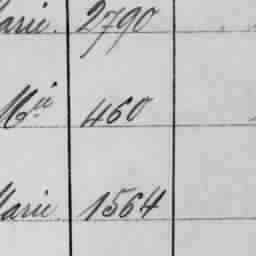 arie. 2790
Mie 460
Marie. 1564